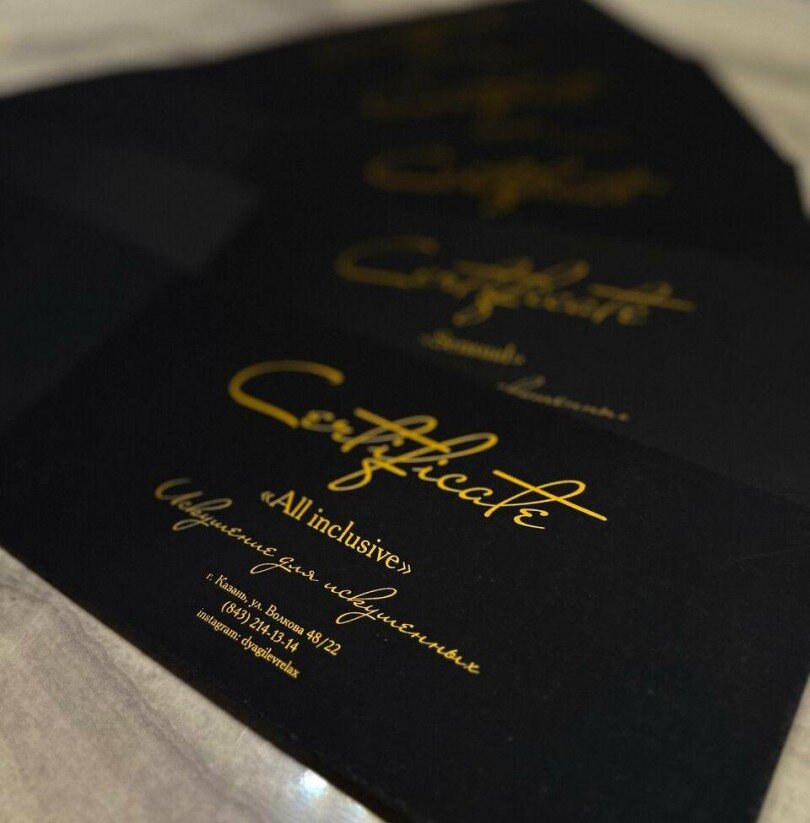 Certificate
Certificate
«Sensual»
Certificate
«All inclusive»
Искушение для искушенных
г. Казань, ул. Волкова 48/22
(843) 214-13-14
instagram: dyagilevrelax